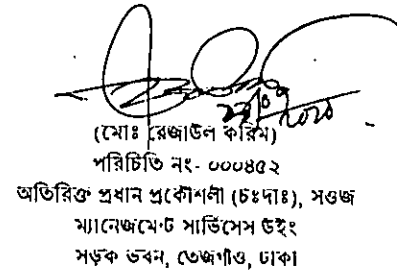 (মোঃ রেজাউল করিম)
পরিচিতি নং- ০০০৪৫২
অতিরিক্ত প্রধান প্রকৌশলী (চঃদাঃ), সওজ
ম্যানেজমেন্ট সার্ভিসেস উইং
সড়ক ভবন, তেজগাঁও, ঢাকা